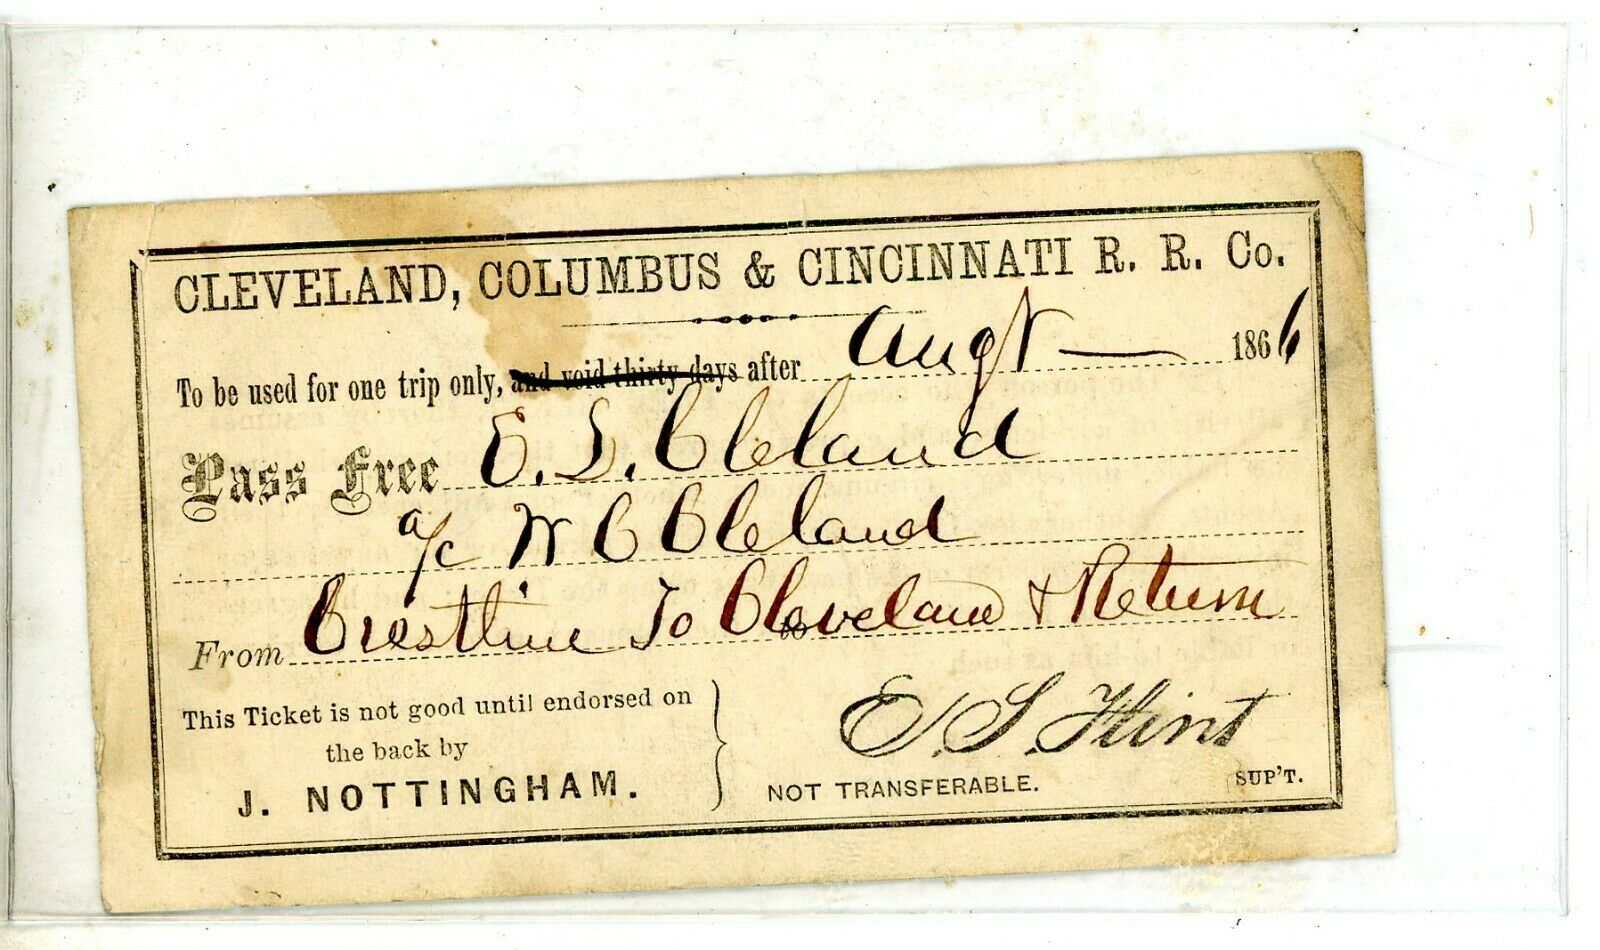 CLEVELAND, COLUMBUS & CINCINNATI R. R. Co.
Augt 1866
To be used for one trip only, and void thirty days after
Pass Free E. L. Cleland
a/c W C Cleland
From Crestline To to Cleveland & Return
This Ticket is not good until endorsed on
the back by
J. NOTTINGHAM.
E. S. Flint
NOT TRANSFERABLE.
SUP'T.